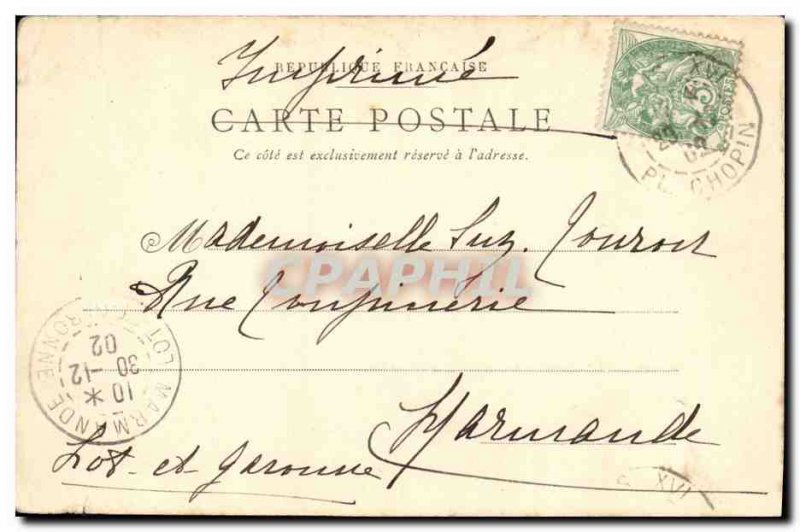 Imprimé
REPUBLIQUE FRANÇAISE
CARTE POSTALE
Ce côté est exclusivement réservé à l'adresse.
XVI
29
02
PL. CHOPIN
Mademoiselle Suz.
CPAPHIL
Rue
MARMANDE
LOT
GARONNE
10 *
30 -12
02
Marmande
Lot - et Garonne
XVI